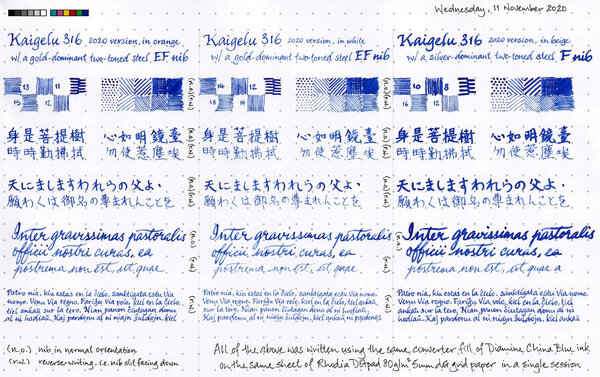 Wednesday, 11 November 2020
Kaigelu 316 2020 version, in orange
w/ a gold-dominant two-toned steel EF nib
13 11
15
(n.o.) (r.w.)
身是菩提樹 心如明鏡臺
時時勤拂拭 勿使惹塵埃
(n.o.) (r.w.)
天にましますわれらの父よ・
願わくは御名の尊まれんことを
(n.o.) (r.w.)
Inter gravissimas pastoralis
officii nostri curas, ea
postrema non est, ut quae
(n.o.) (r.w.)
Patro nia, kiu estas en la ĉielo, sanktigata estu Via
nomo. Venu Via regno. Fariĝu Via volo, kiel en la ĉielo,
tiel ankaŭ sur la tero. Nian panon ĉiutagan donu
al ni hodiaŭ. Kaj pardonu al ni niajn ŝuldojn, kiel
(r.w.)
Kaigelu 316 2020 version, in white
w/ a gold-dominant two-toned steel EF nib
14 12
16
(n.o.) (r.w.)
身是菩提樹 心如明鏡臺
時時勤拂拭 勿使惹塵埃
(n.o.) (r.w.)
天にましますわれらの父よ・
願わくは御名の尊まれんことを
(n.o.) (r.w.)
Inter gravissimas pastoralis
officii nostri curas, ea
postrema non est, ut quae
(n.o.) (r.w.)
Patro nia, kiu estas en la ĉielo, sanktigata estu
Via nomo. Venu Via regno. Fariĝu Via volo, kiel en la
ĉielo, tiel ankaŭ sur la tero. Nian panon ĉiutagan donu
al ni hodiaŭ. Kaj pardonu al ni niajn ŝuldojn, kiel ankaŭ ni pardonas
(r.w.)
Kaigelu 316 2020 version, in beige
w/ a silver-dominant two-toned steel, F nib
10 8
16 12
身是菩提樹 心如明鏡臺
時時勤拂拭 勿使惹塵埃
天にましますわれらの父よ・
願わくは御名の尊まれんことを
Inter gravissimas pastoralis
officii nostri curas, ea
postrema non est, ut quae a
Patro nia, kiu estas en la ĉielo, sanktigata estu Via
nomo. Venu Via regno. Fariĝu Via volo, kiel en la ĉielo, tiel
ankaŭ sur la tero. Nian panon ĉiutagan donu al ni
hodiaŭ. Kaj pardonu al ni niajn ŝuldojn, kiel ankaŭ
(n.o.) nib in normal orientation
(r.w.) reverse-writing - i.e. nib slit facing down
All of the above was written using the same converter fill of Diamine China Blue ink
on the same sheet of Rhodia Dotpad 80g/m² 5mm dot grid paper in a single session